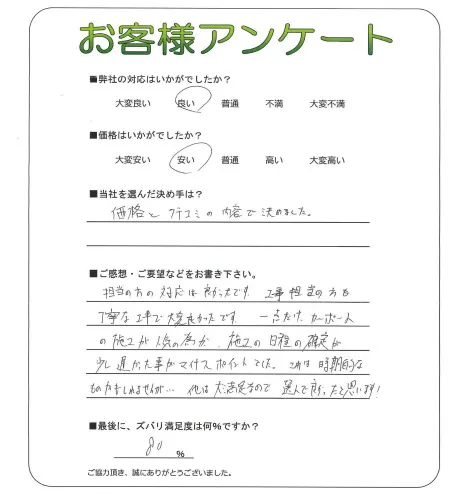 お客様アンケート
■弊社の対応はいかがでしたか？
大変良い 良い 普通 不満 大変不満
■価格はいかがでしたか？
大変安い 安い 普通 高い 大変高い
■当社を選んだ決め手は？
価格と クチコミの内容で決めました。
■ご感想・ご要望などをお書き下さい。
担当の方の対応は良かったです。工事担当の方も
丁寧な工事で大変良かったです。一点だけ、カーポート
の施工が人気の為か、施工の日程の確定が
少し遅かった事がマイナスポイントでした。これは時期的な
ものかもしれませんが… 他は大満足なので 選んで良かったと思います!
■最後に、ズバリ満足度は何%ですか？
80 %
ご協力頂き、誠にありがとうございました。